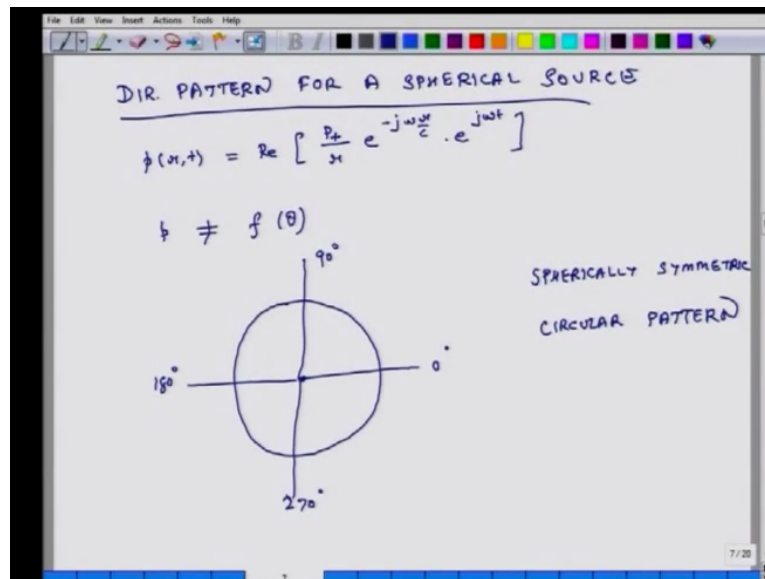 File Edit View Insert Actions Tools Help
DIR. PATTERN FOR A SPHERICAL SOURCE
p(r,t) = Re [ P+/r e^{-jωr/c} . e^{jωt} ]
p ≠ f(θ)
90°
SPHERICALLY SYMMETRIC
CIRCULAR PATTERN
180°
0°
270°
7/20